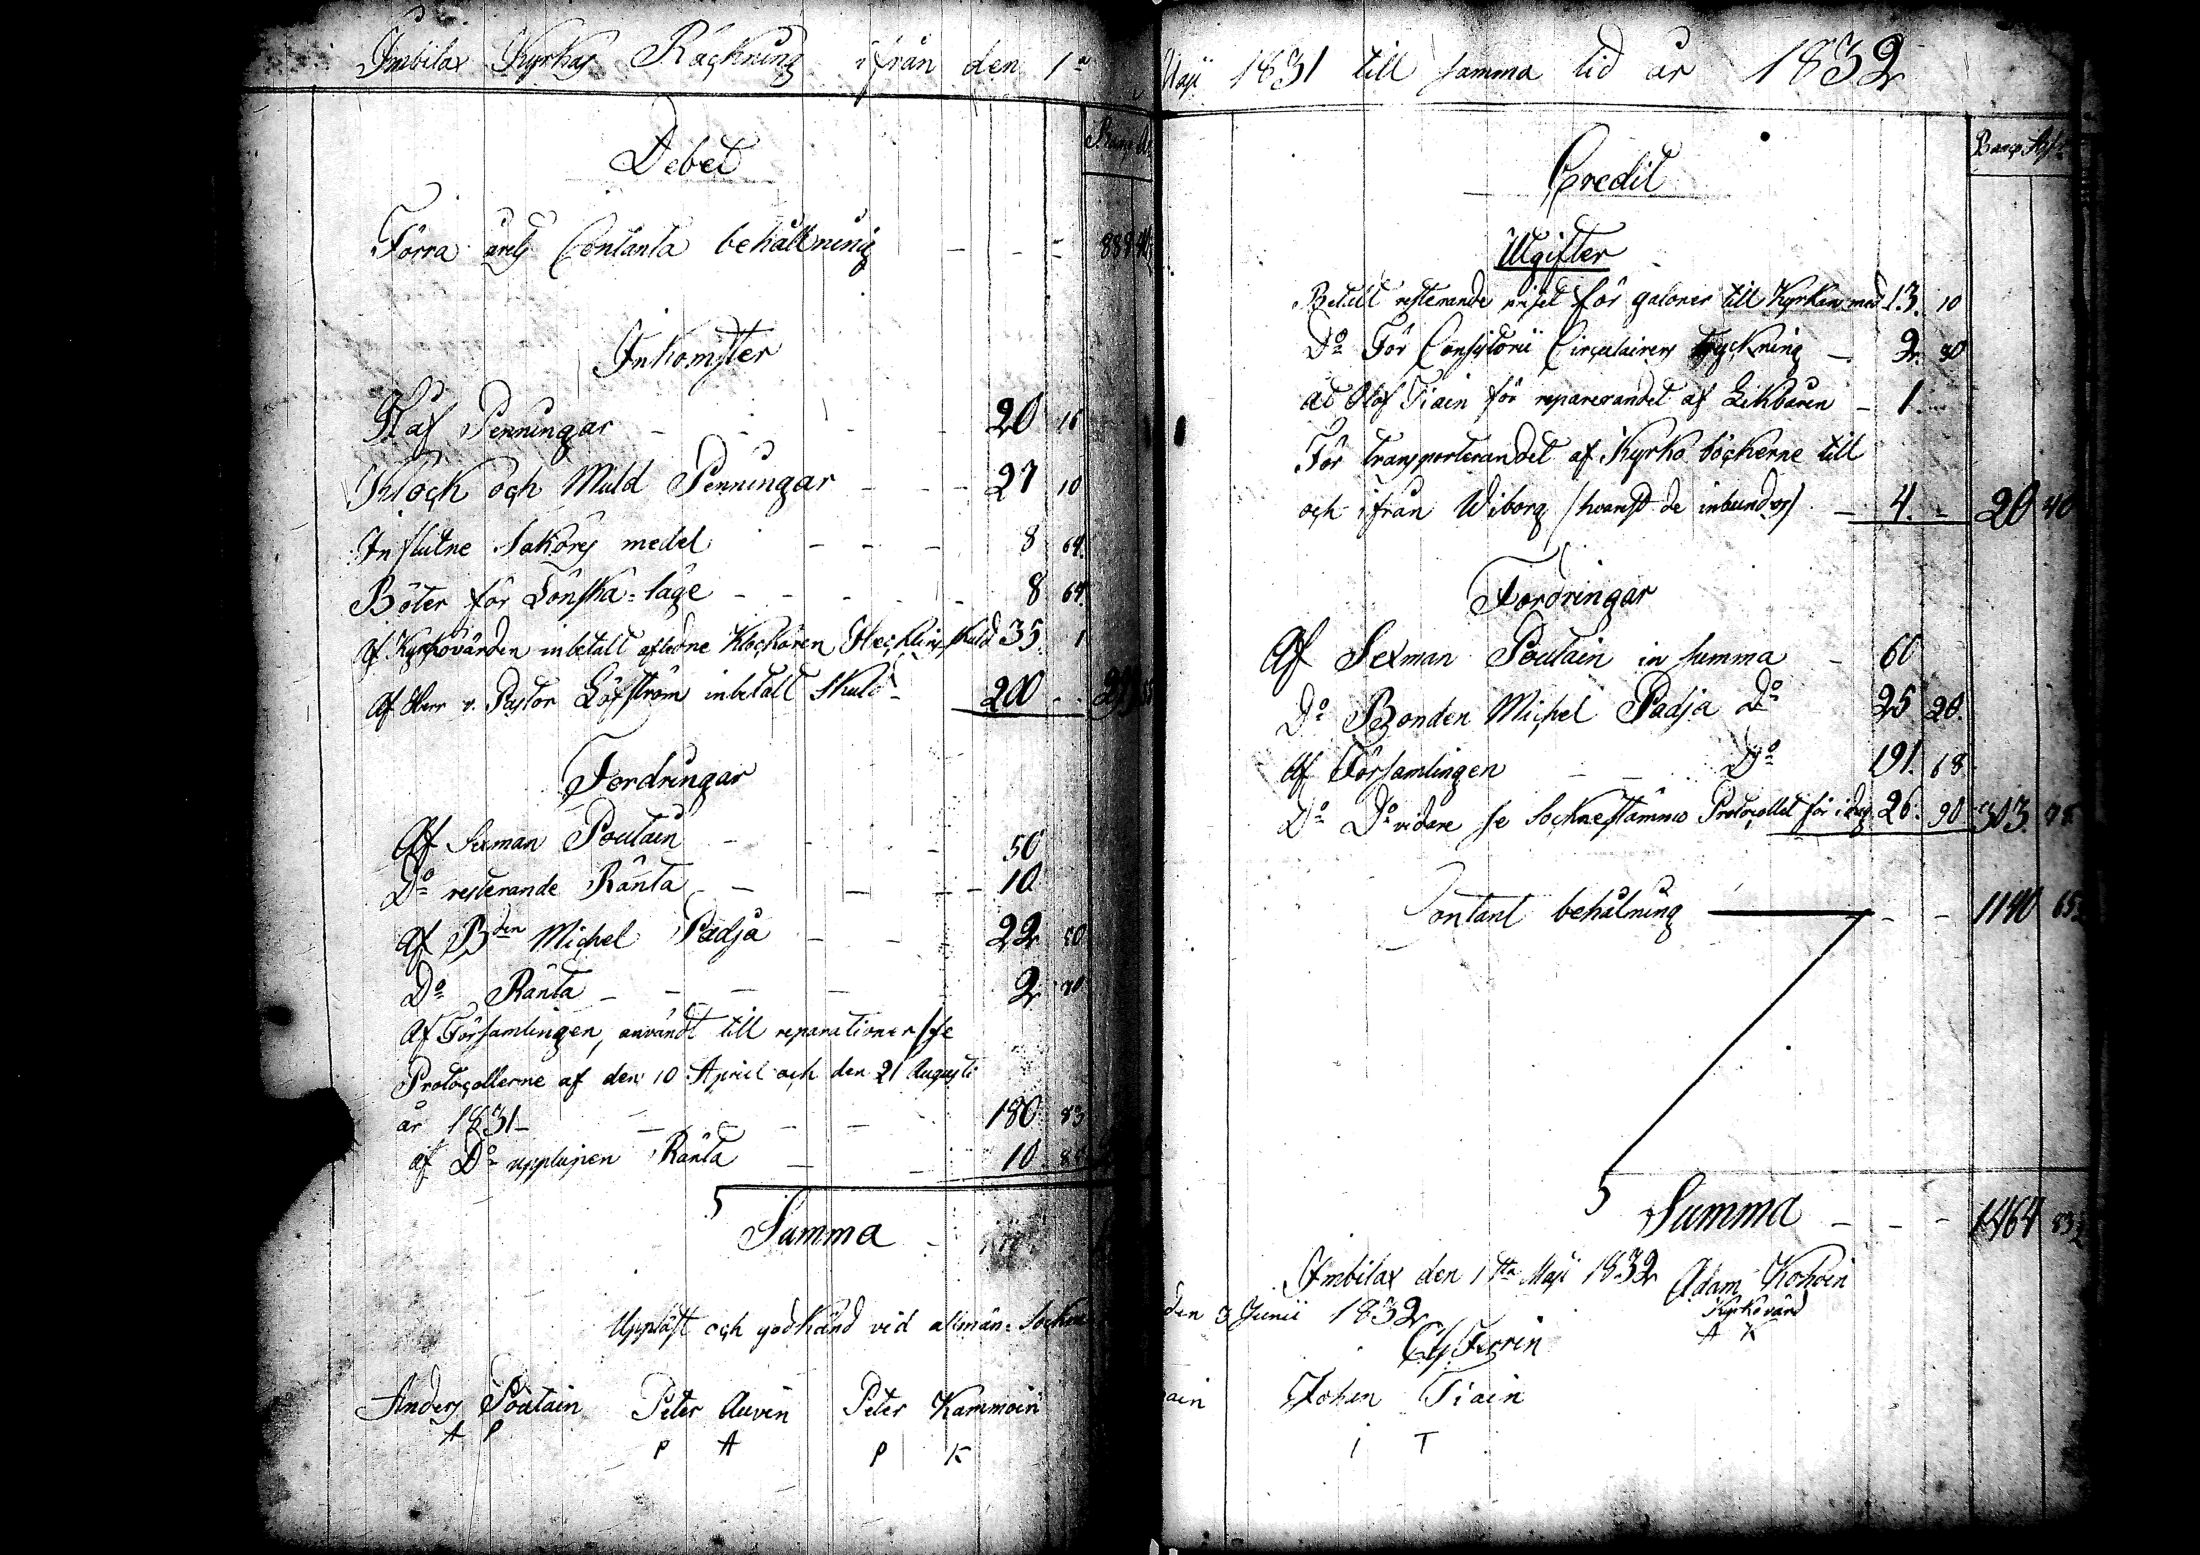 Imbilax Kyrkas Räckning ifrån den 1a
Debet
Förra årets Contanta behållning - - -
Inkomster
Haf Penningar - - - - 20 16
Klock och Muld Penningar - - - 27 10
Influtne Saköres medel - - - 8 64.
Böter för Lönska-läge - - - - - 8 64.
Af Kyrkovärden inbetalt afledne Klockaren Hecklins skuld 35. 1
Af Herr v. Pastor Löfström inbetalt Skuld - 200 - -
Fordringar
Af Sexman Poutain - - - - 50
Do resterande Ränta - - - - 10
Af Bden Michel Padja - - - 22 50
Do Ränta - - - - 2 70
Af Församlingen, användt till reparationer /se
Protocollerne af den 10 April och den 21 Augusti
år 1831 - - - - 180. 83
af Do upplupen Ränta - - 10. 85
Summa -
Uppläst och godkänd vid allmän Socken
Anders Poutain Peter Auvin Peter Kammoin
A P P A P K
Maji 1831 till samma tid år 1832
Banco Ass.
Credit
Utgifter
Betalt resterande priset för galoner till Kyrkan med 13. 10
Do För Consistorii Circulairers tryckning - 2. 30
At Olof Tiain för reparerandet af Likbåren - 1. -
För transporterandet af Kyrko böckerne till
och ifrån Wiborg /hvarest de inbundos/. - 4. - 20 40
Fordringar
Af Sexman Poutain in summa - 60
Do Bonden Michel Padja Do 25 20.
Af Församlingen - - Do 191. 68
Do Do vidare se Sockne stämmo Protocollet för i dag 26. 90 303. 78
Contant behålning - - 1140 65
Summa - - - 1464 83
Imbilax den 1sta Maji 1832 Adam Kohoin
Kyrkovärd
A K
den 3 Junii 1832
ain Johan Tiain
I T